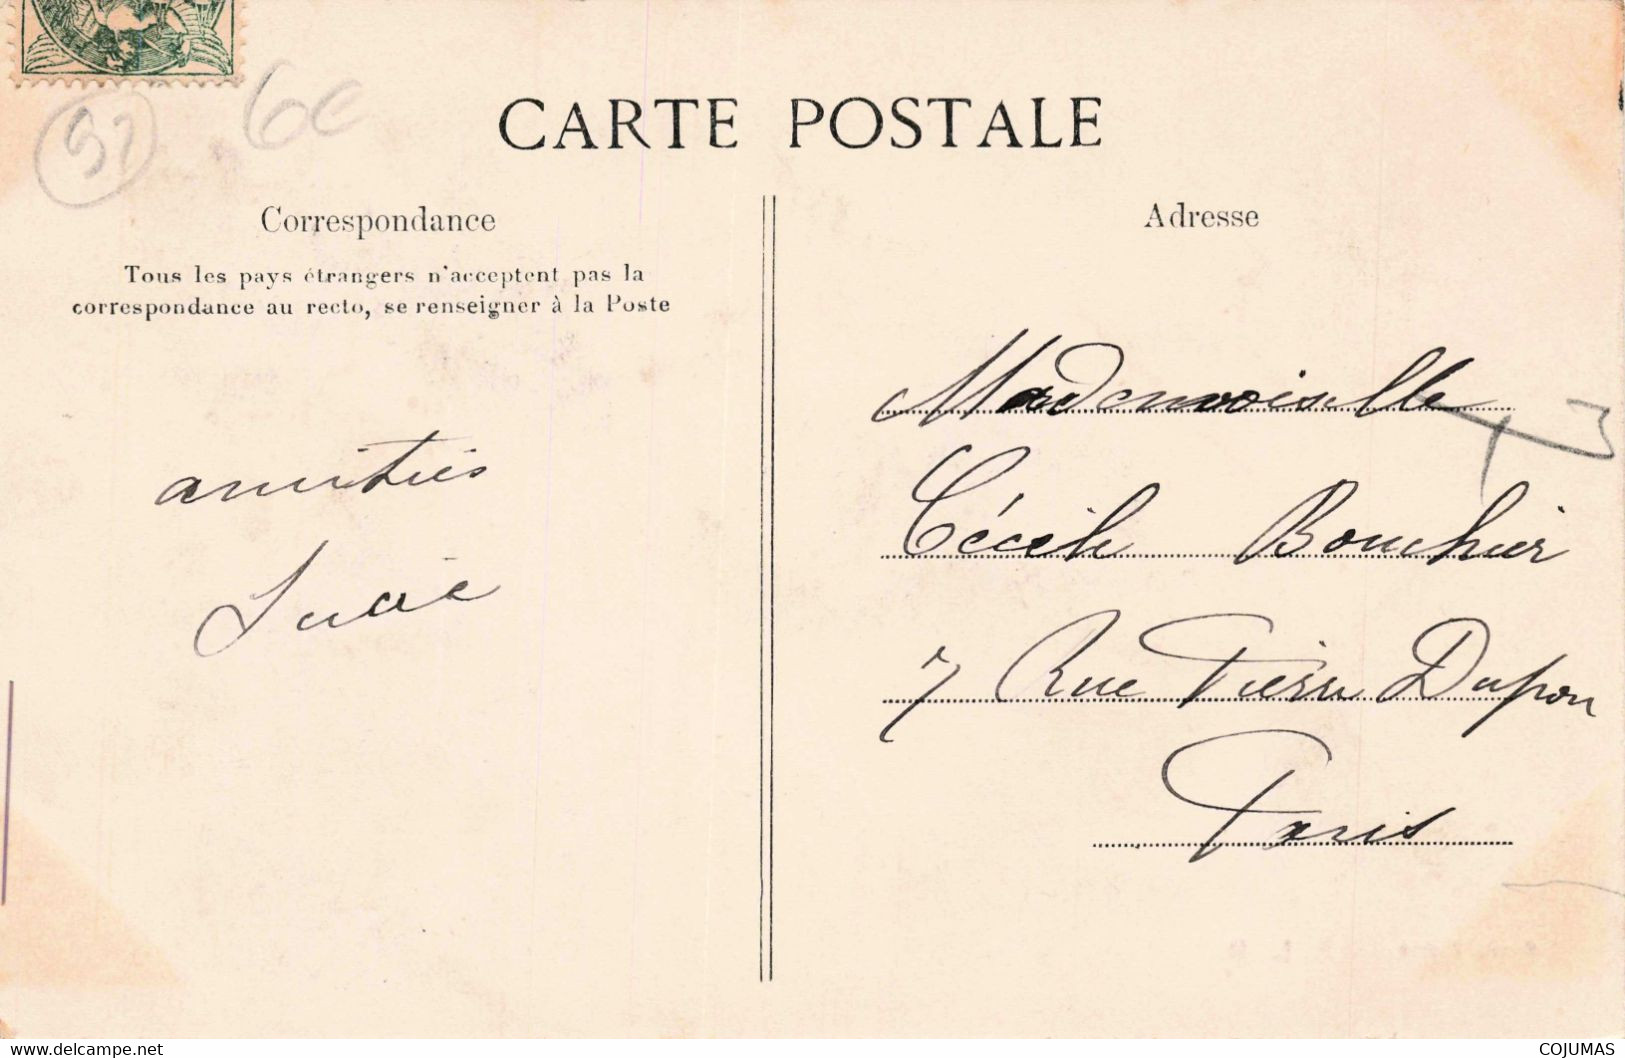 6€
CARTE POSTALE
Correspondance
Tous les pays étrangers n'acceptent pas la
correspondance au recto, se renseigner à la Poste
amitiés
Lucie
Adresse
Mademoiselle
Cécile Bouchier
7 Rue Pierre Dupon
Paris
https://www.delcampe.net
COJUMAS